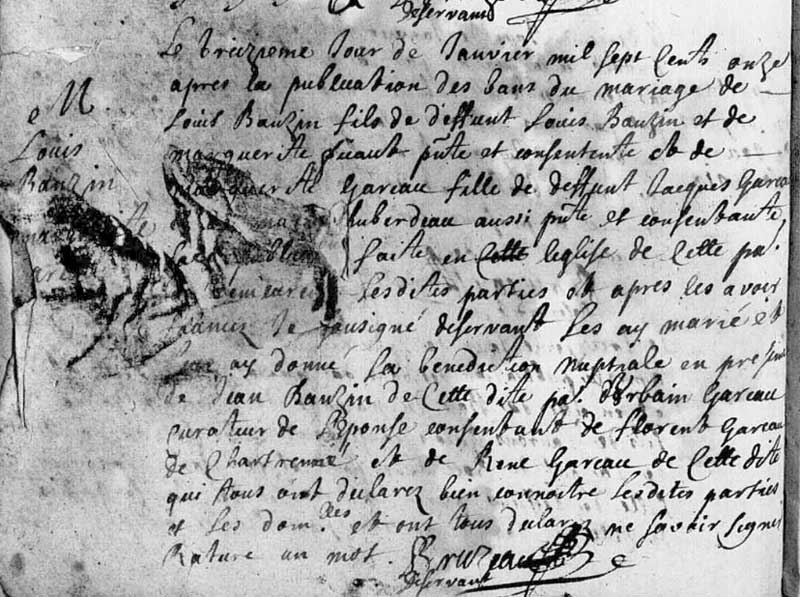 deservant
Le treizieme Jour de Janvier mil sept cents onze
apres la publication des bans du mariage de
Louis Banzin fils de deffunt Louis Banzin et de
marguerite pnte et consentente et de
marguerite Gareau fille de deffunt Jacques Garea
huberdeau aussi pnte et consentante
faite en Cette leglise de Cette pa.
lesdites parties et apres les avoir
le sousigné deservant les ay marié et
ay donné la benediction nuptiale en presen
de Jean Banzin de Cette dite pa. d'Urbain Gareau
curateur de l'eponse consentant de florent Gareau
de Chartrenne et de René Gareau de Cette dite
qui tous ont declarez bien connoitre lesdites parties
et les dom.les et ont tous declarez ne savoir signer
Rature un mot.
deservant
M.
Louis
Banzin